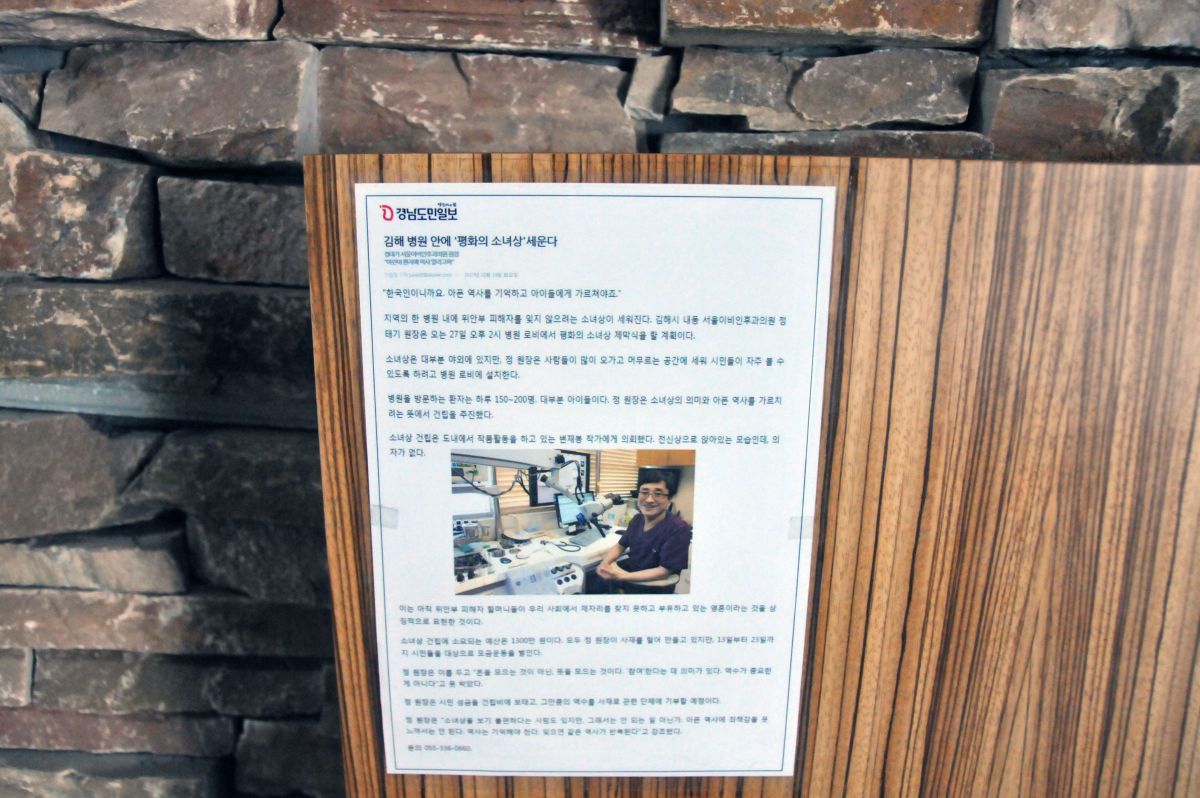 경남도민일보
김해 병원 안에 '평화의 소녀상'세운다
정태기 서울이비인후과의원 원장
"어린이 환자에 역사 알리고파"
"한국인이니까요. 아픈 역사를 기억하고 아이들에게 가르쳐야죠."
지역의 한 병원 내에 위안부 피해자를 잊지 않으려는 소녀상이 세워진다. 김해시 내동 서울이비인후과의원 정
태기 원장은 오는 27일 오후 2시 병원 로비에서 평화의 소녀상 제막식을 할 계획이다.
소녀상은 대부분 야외에 있지만, 정 원장은 사람들이 많이 오가고 머무르는 공간에 세워 시민들이 자주 볼 수
있도록 하려고 병원 로비에 설치한다.
병원을 방문하는 환자는 하루 150~200명. 대부분 아이들이다. 정 원장은 소녀상의 의미와 아픈 역사를 가르치
려는 뜻에서 건립을 추진했다.
소녀상 건립은 도내에서 작품활동을 하고 있는 변재봉 작가에게 의뢰했다. 전신상으로 앉아있는 모습인데, 의
자가 없다.
이는 아직 위안부 피해자 할머니들이 우리 사회에서 제자리를 찾지 못하고 부유하고 있는 영혼이라는 것을 상
징적으로 표현한 것이다.
소녀상 건립에 소요되는 예산은 1300만 원이다. 모두 정 원장이 사재를 털어 만들고 있지만, 13일부터 23일까
지 시민들을 대상으로 모금운동을 벌인다.
정 원장은 이를 두고 "돈을 모으는 것이 아닌, 뜻을 모으는 것이다. '참여'한다는 데 의미가 있다. 액수가 중요한
게 아니다"고 못 박았다.
정 원장은 시민 성금을 건립비에 보태고, 그만큼의 액수를 사재로 관련 단체에 기부할 예정이다.
정 원장은 "소녀상을 보기 불편하다는 사람도 있지만, 그래서는 안 되는 일 아닌가. 아픈 역사에 죄책감을 못
느껴서는 안 된다. 역사는 기억해야 한다. 잊으면 같은 역사가 반복된다"고 강조했다.
문의 055-336-0660.